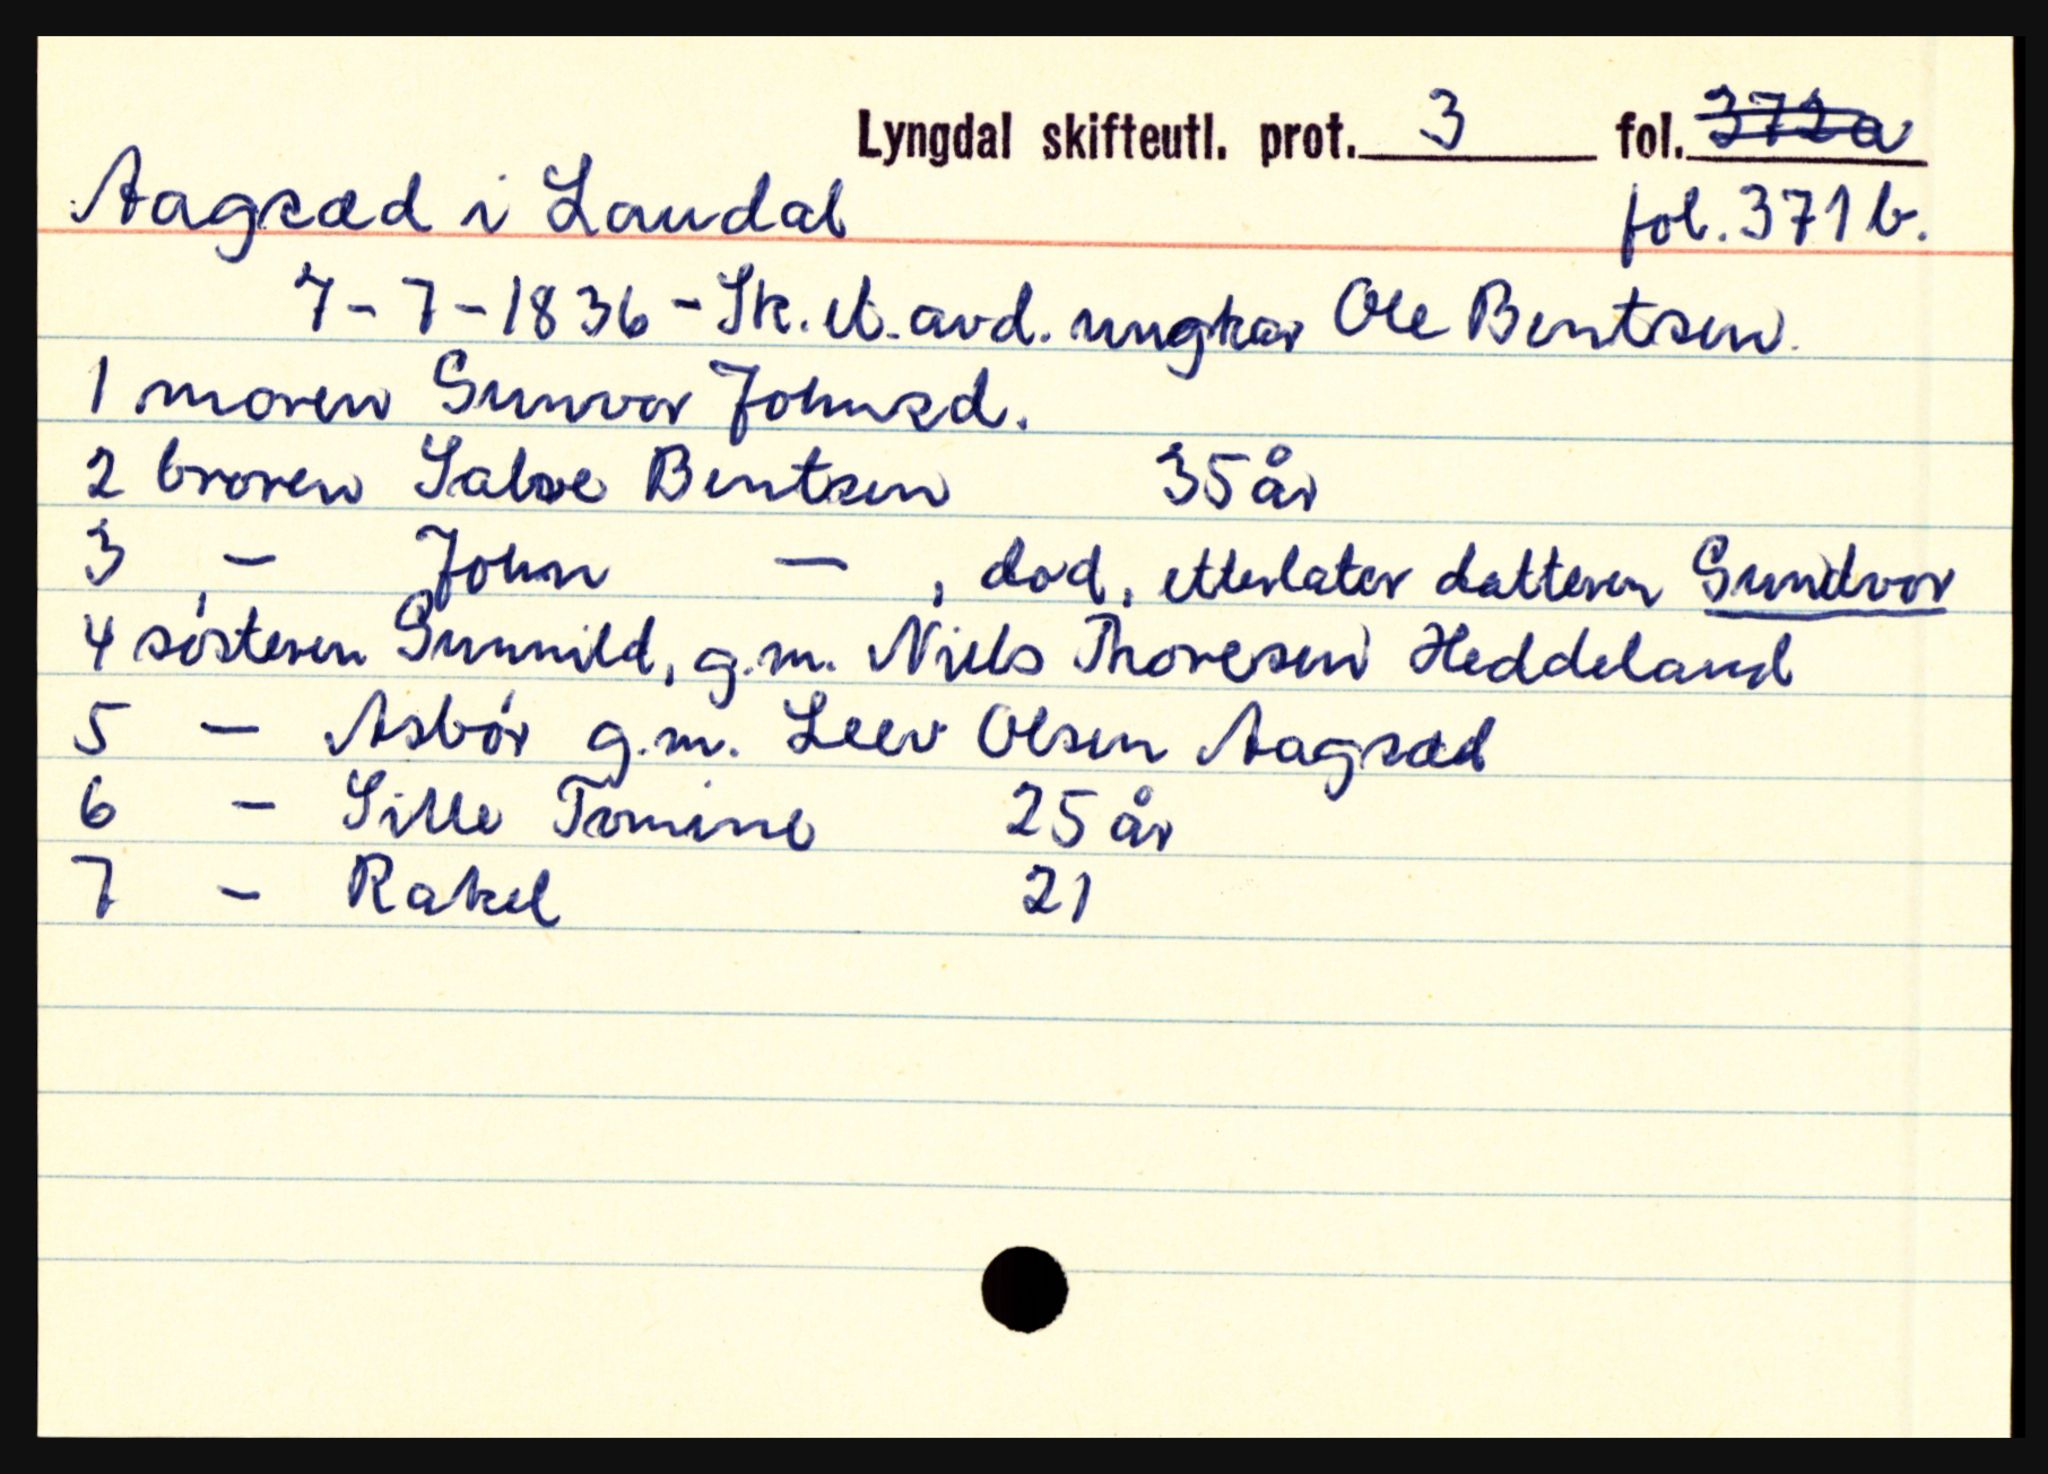 Lyngdal skifteutl. prot. 3 fol. 372a
Aagsæd i Laudal fol. 371b.
7-7-1836 - Sk. et. avd. ungkar Ole Bentsen.
1 moren Gunvor Johnsd.
2 broren Salve Bentsen 35 år
3 - John - , død, etterlater datteren Gundvor
4 søsteren Gunnild, g.m. Niels Thoresen Heddeland
5 - Asbør g.m. Leev Olsen Aagsæd
6 - Sille Tomine 25 år
7 - Rakel 21